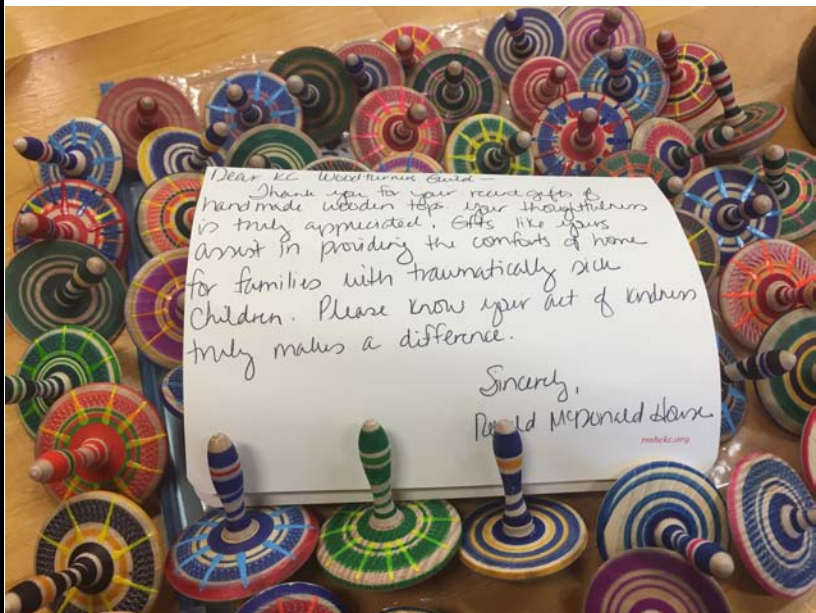 Dear KC Woodturners Guild —
Thank you for your recent gifts of
handmade wooden tops. Your thoughtfulness
is truly appreciated. Gifts like yours
assist in providing the comforts of home
for families with traumatically sick
children. Please know your act of kindness
truly makes a difference.
Sincerely,
Ronald McDonald House
rmhckc.org